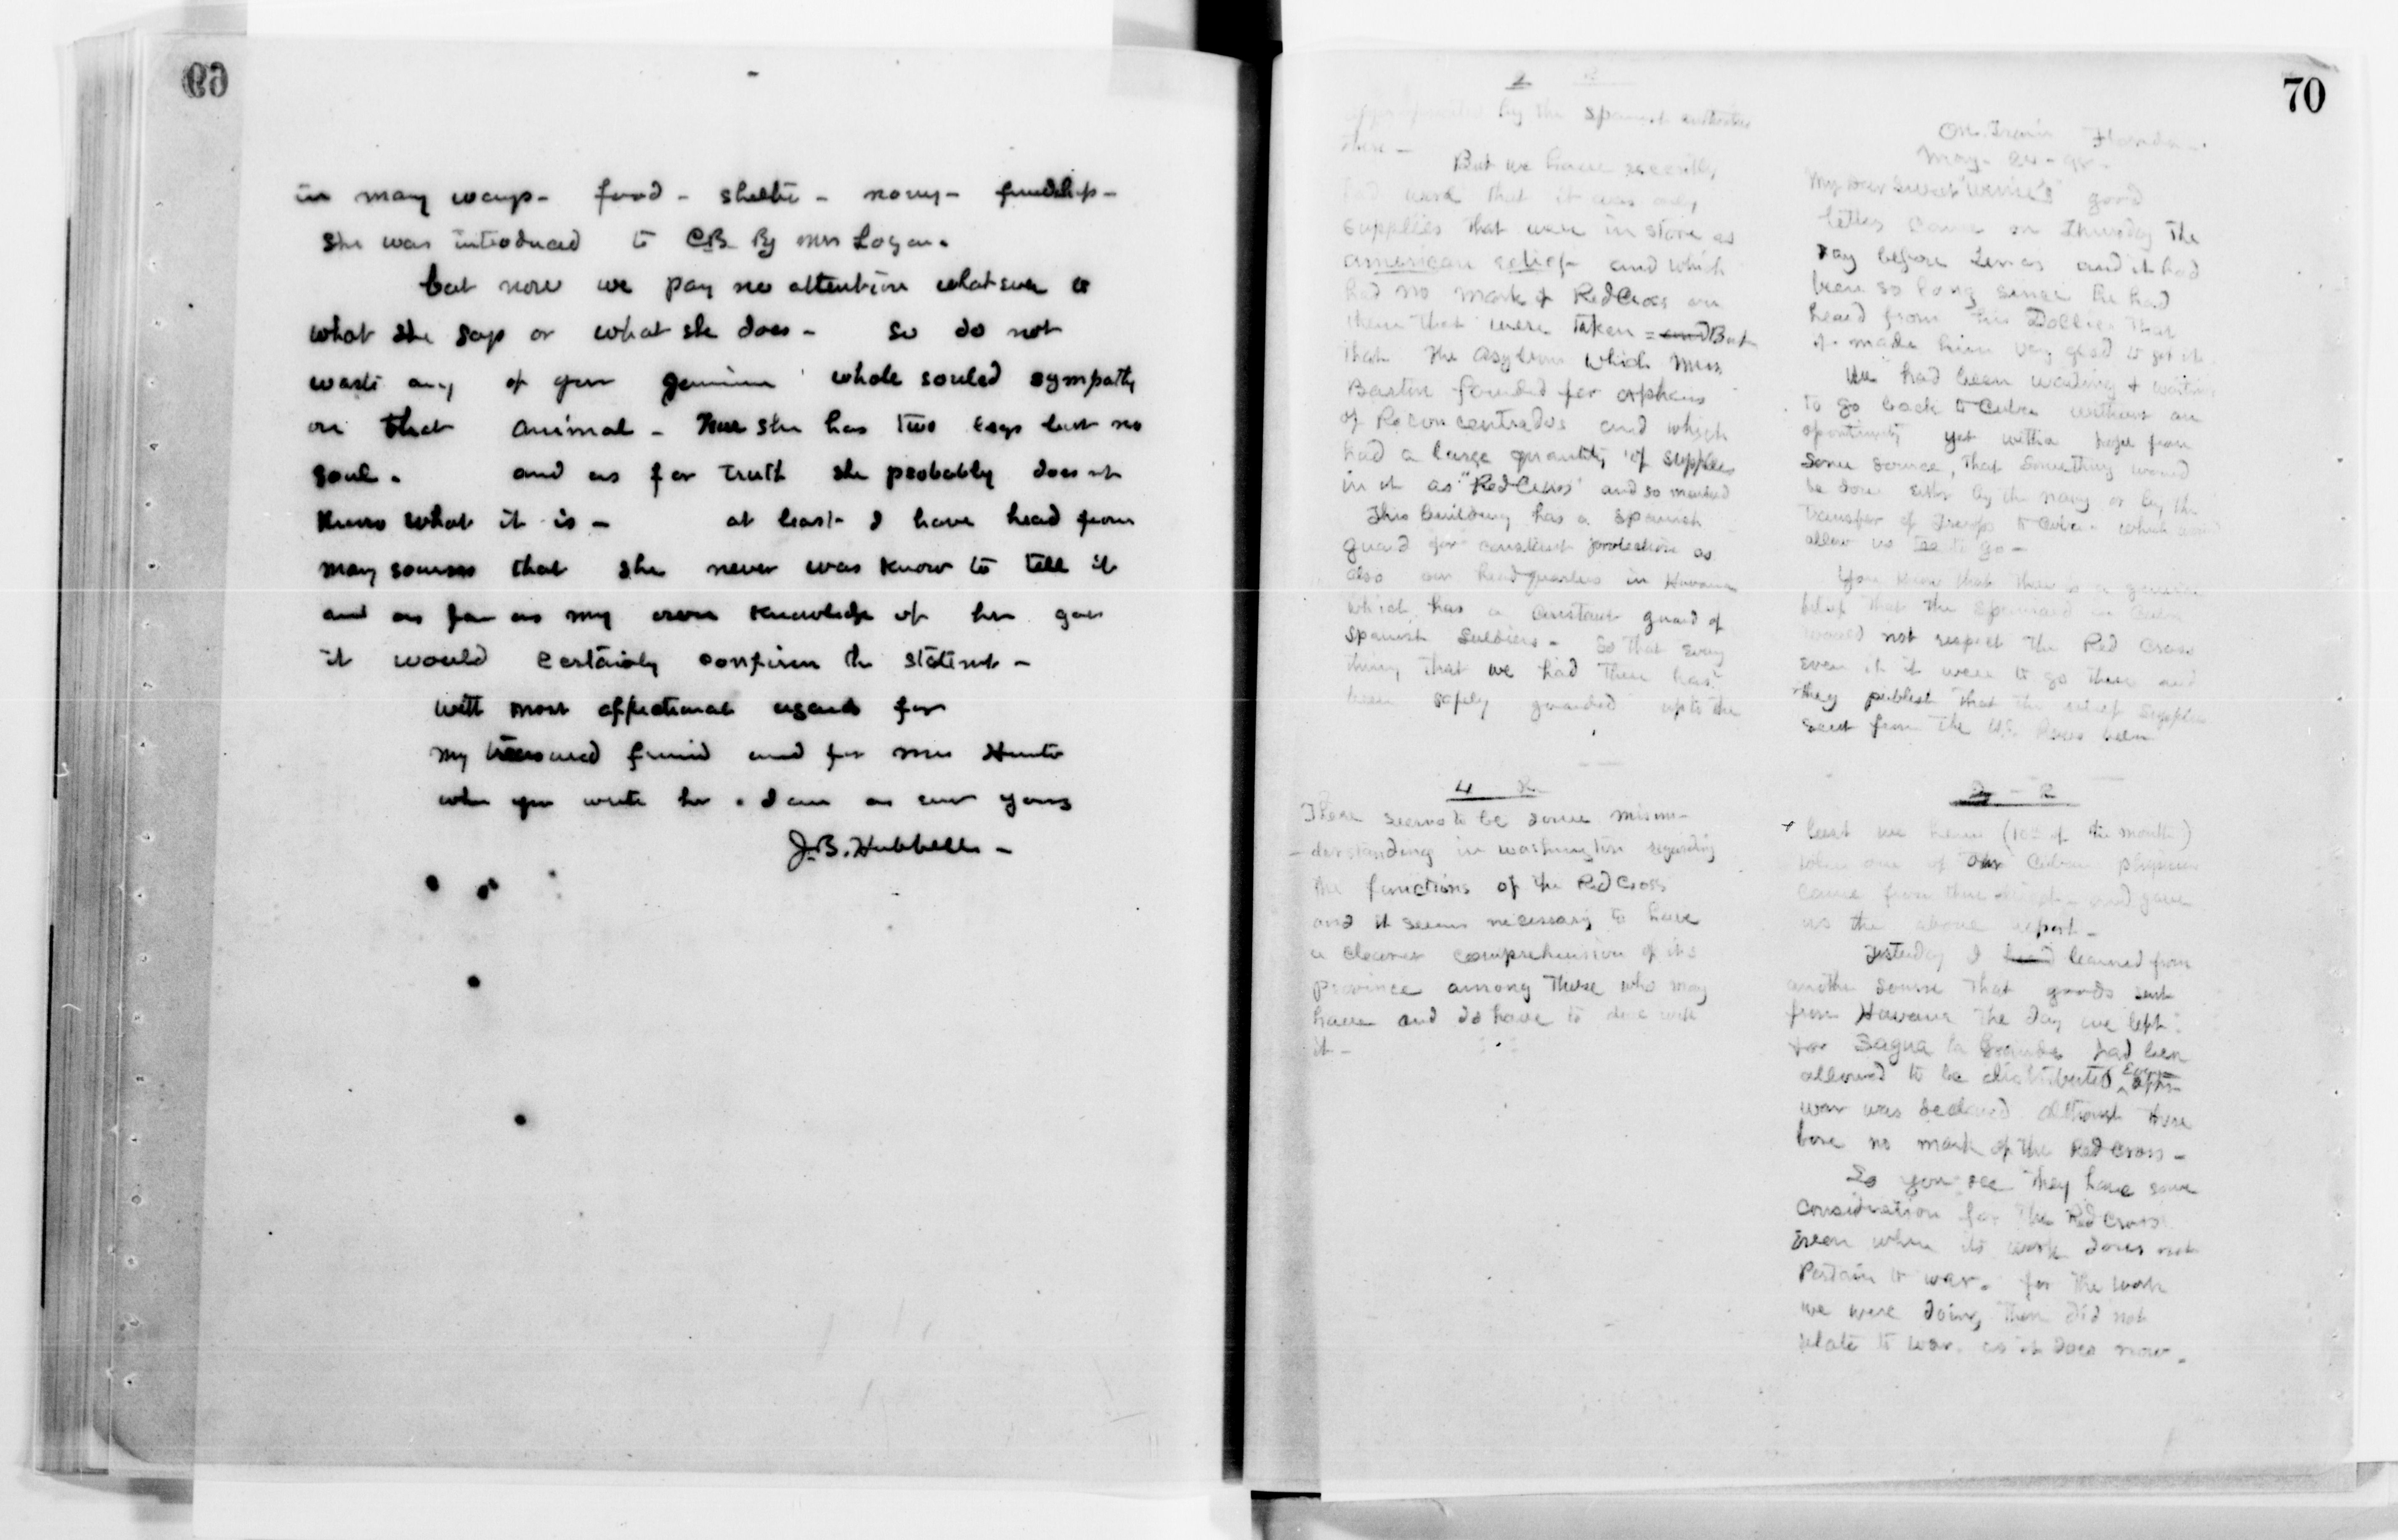 69
in many ways - food - shelter - money - friendship -
she was introduced to CB By Mrs Logan.
but now we pay no attention whatever to
what she says or what she does - So do not
waste any of your genuine whole souled sympathy
on that animal - she has two legs but no
soul. and as for truth she probably does nt
know what it is - at least I have head from
many sources that she never was know to tell it
and as far as my own knowledge of her goes
it would certainly confirm the statement -
with most affectionate regards for
my treasured friend and for Mrs
when you write her. I am as ever yours
J.B. Hubbell -
70
On Train Florida -
May - 24 - 98 -
My Dear Sweet good
letter came on Thursday the
day before and it had
been so long since he had
heard from his Dollie that
it made him very glad to get it
We had been waiting & waiting
to go back to Cuba without an
oportunity yet with a hope from
some source, that something would
be done either by the navy or by the
transfer of Troops to Cuba - which would
allow us to go -
You know that there is a general
belief that the Spaniard in Cuba
would not respect the Red Cross
even if it were to go there and
they publish that the relief supplies
sent from the U.S. have been
2 R
appropriated by the Spanish authorities
there -
But we have recently
had word that it was only
supplies that were in store as
american relief and which
had no mark of Red Cross on
them that were taken = and But
that the asylum which Miss
Barton founded for orphans
of Reconcentrados and which
had a large quantity of supplies
in it as "Red Cross" and so marked
This building has a Spanish
guard for constant protection as
also our headquarters in Havana
which has a constant guard of
Spanish Soldiers - So that every
thing that we had there has
been safely guarded up to the
3 - R
least we knew (10th of the month)
when one of our Cuban physician
came from there direct - and gave
us the above report -
Yesterday I heard learned from
another sourse that goods sent
from Havana the day we left
for Sagua la Grande had been
allowed to be distributed even after
war was declared although these
bore no mark of the Red Cross -
So you see they have some
consideration for the Red Cross
even when its work does not
Pertain to war. for the work
we were doing then did not
relate to war. as it does now.
4 R
There seems to be some misun-
-derstanding in washington regarding
the functions of the Red Cross
and it seems necessary to have
a clearer comprehension of its
province among those who may
have and do have to do with
it -